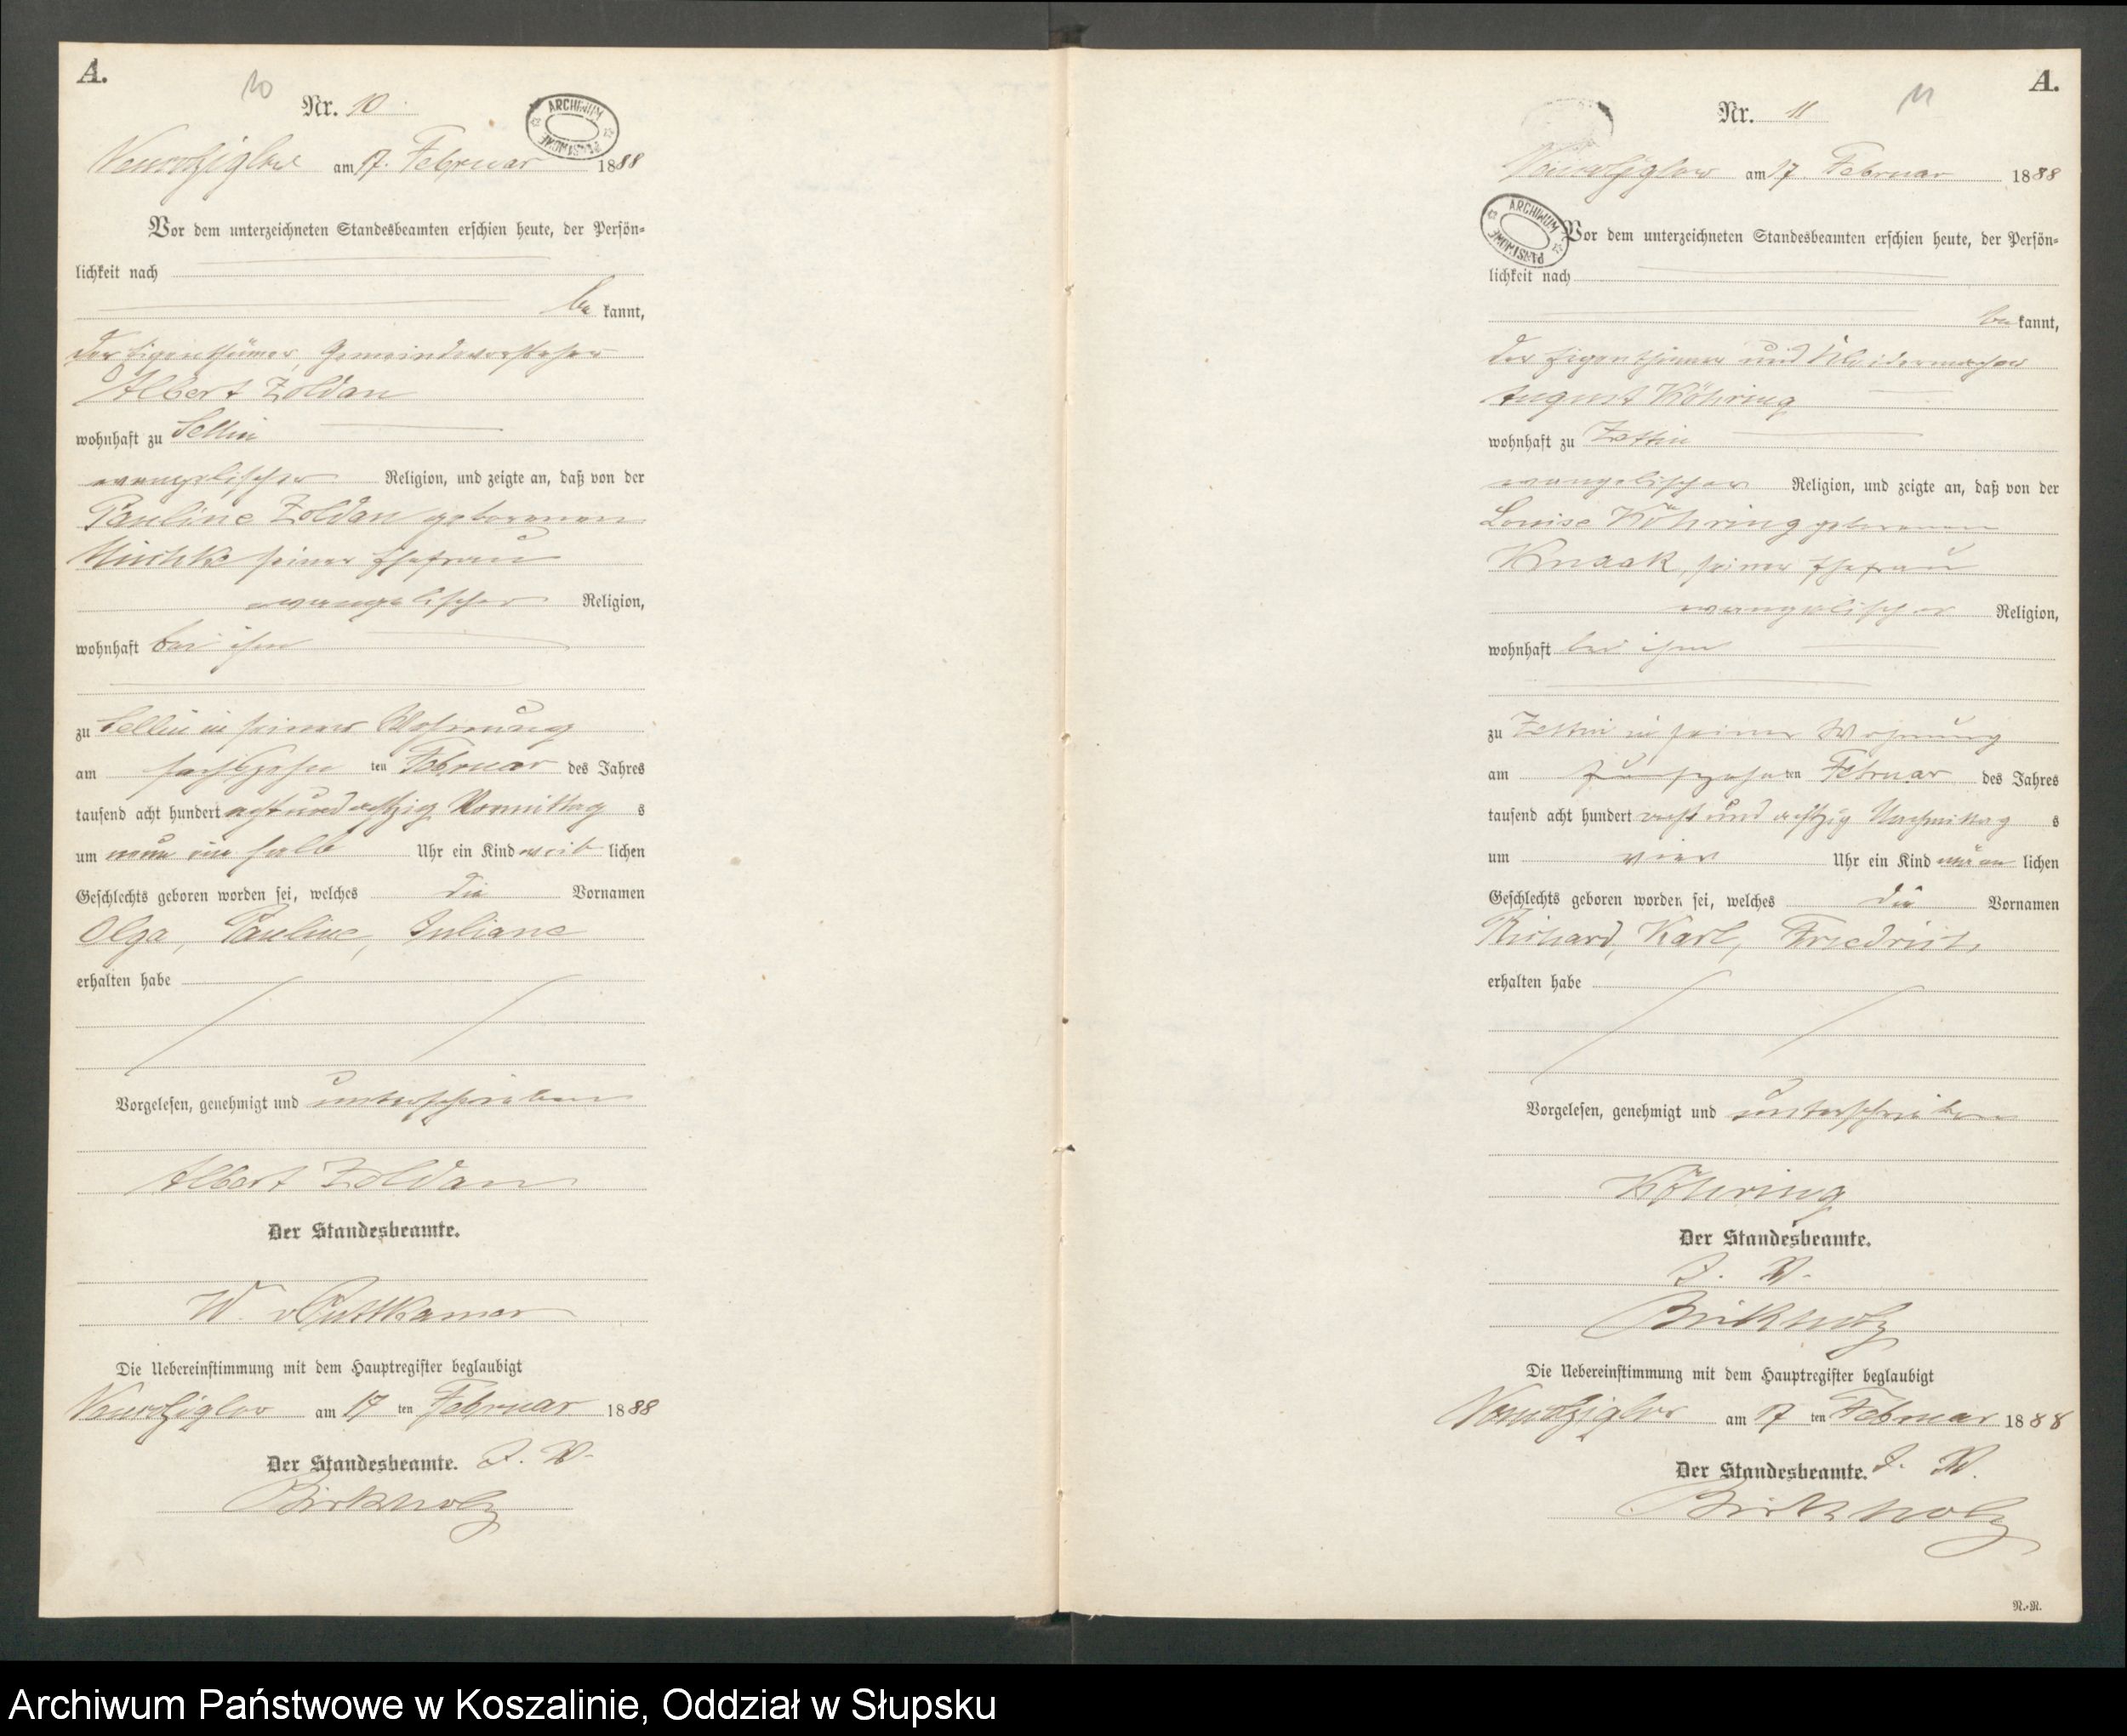 A.
10
Nr. 10
ARCHIWUM PAŃSTWOWE
am 17. Februar 1888
Vor dem unterzeichneten Standesbeamten erschien heute, der Persön-
lichkeit nach
be kannt,
der Eigenthümer, Gemeindevorsteher
Albert Zoldan
wohnhaft zu Sellin
evangelischer Religion, und zeigte an, daß von der
Pauline Zoldan geborenen
seiner Ehefrau
evangelischer Religion,
wohnhaft bei ihm
zu Sellin in seiner Wohnung
am sechszehn ten Februar des Jahres
tausend acht hundert acht und achtzig Vormittag s
um neun ein halb Uhr ein Kind weib lichen
Geschlechts geboren worden sei, welches die Vornamen
Olga, Pauline, Juliane
erhalten habe
Vorgelesen, genehmigt und unterschrieben
Albert Zoldan
Der Standesbeamte.
W. v Puttkamer
Die Uebereinstimmung mit dem Hauptregister beglaubigt
am 17 ten Februar 1888
Der Standesbeamte. J. V.
Birkholz
A.
11
Nr. 11
am 17. Februar 1888
ARCHIWUM PAŃSTWOWE
Vor dem unterzeichneten Standesbeamten erschien heute, der Persön-
lichkeit nach
be kannt,
der Eigenthümer und Kleidermacher
August Köhring
wohnhaft zu Zettin
evangelischer Religion, und zeigte an, daß von der
Louise Köhring geborenen
Knaak, seiner Ehefrau
evangelischer Religion,
wohnhaft bei ihm
zu Zettin in seiner Wohnung
am fünfzehn ten Februar des Jahres
tausend acht hundert acht und achtzig Nachmittag s
um vier Uhr ein Kind männ lichen
Geschlechts geboren worden sei, welches die Vornamen
Richard, Karl, Friedrich,
erhalten habe
Vorgelesen, genehmigt und unterschrieben
Köhring
Der Standesbeamte.
J. V.
Birkholz
Die Uebereinstimmung mit dem Hauptregister beglaubigt
am 17 ten Februar 1888
Der Standesbeamte. J. V.
Birkholz
N.-N.
Archiwum Państwowe w Koszalinie, Oddział w Słupsku